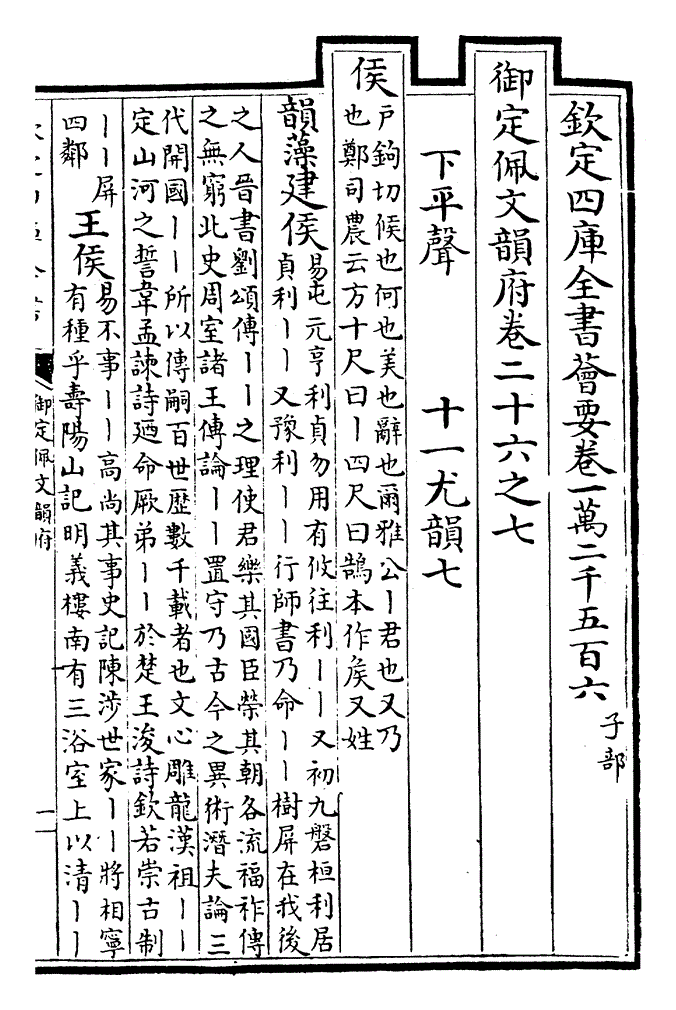 欽定四庫全書薈要卷一萬二千五百六 子部
御定佩文韻府卷二十六之七
下平聲 十一尤韻七
侯
戶鉤切候也何也美也辭也爾雅公丨君也又乃
也鄭司農云方十尺曰丨四尺曰鵠本作矦又姓
韻藻建侯
易屯元亨利貞勿用有攸往利丨丨又初九磐桓利居
貞利丨丨又豫利丨丨行師書乃命丨丨樹屏在我後
之人晉書劉頌傳丨丨之理使君樂其國臣榮其朝各流福祚傳
之無窮北史周室諸王傳論丨丨置守乃古今之異術潛夫論三
代開國丨丨所以傳嗣百世歷數千載者也文心雕龍漢祖丨丨
定山河之誓韋孟諫詩廼命厥弟丨丨於楚王浚詩欽若崇古制
丨丨屏
四鄰
王侯
易不事丨丨高尚其事史記陳涉世家丨丨將相寧
有種乎壽陽山記明義樓南有三浴室上以清丨丨
御定佩文韻府
一